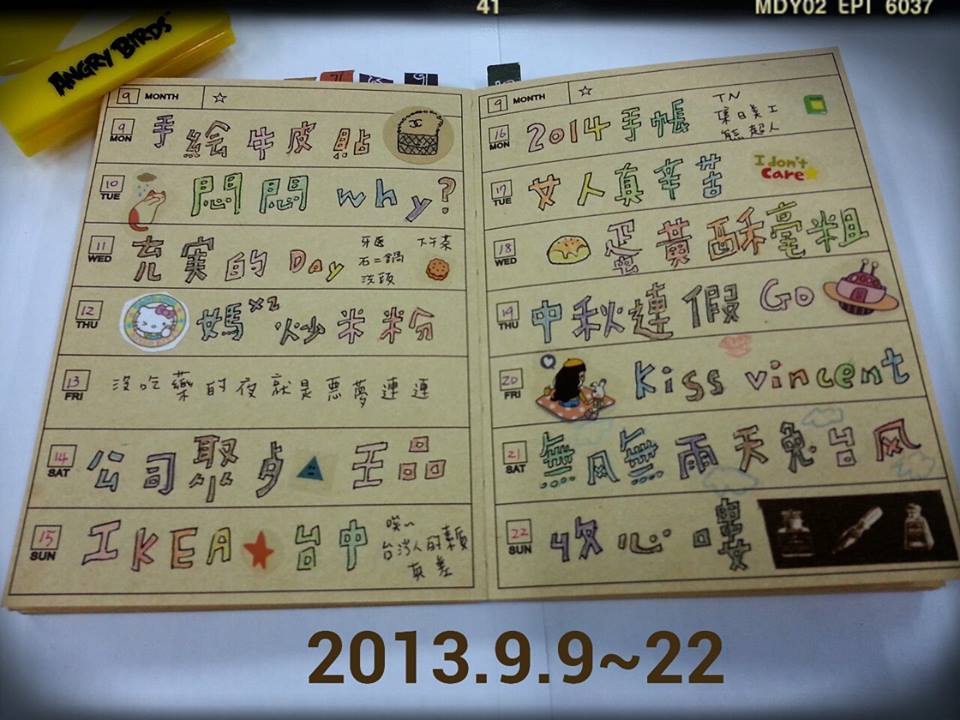 41
MDY02 EPI 6037
ANGRY BIRDS
9 MONTH ☆
9 MON 手繪牛皮貼
10 TUE 悶悶 why?
11 WED 充實的Day
牙醫
石二鍋
洗頭
下午茶
12 THU 媽×2 炒米粉
13 FRI 沒吃藥的夜就是惡夢連連
14 SAT 公司聚 王品
15 SUN IKEA★台中
唉~
台灣人的素質
真差
9 MONTH ☆
16 MON 2014手帳
TN
熊超人
17 TUE 女人真辛苦
I don't Care
18 WED 蛋黃酥毫粗
19 THU 中秋連假 Go
20 FRI Kiss vincent
21 SAT 無風無雨天兔台风
22 SUN 收心口
2013.9.9~22